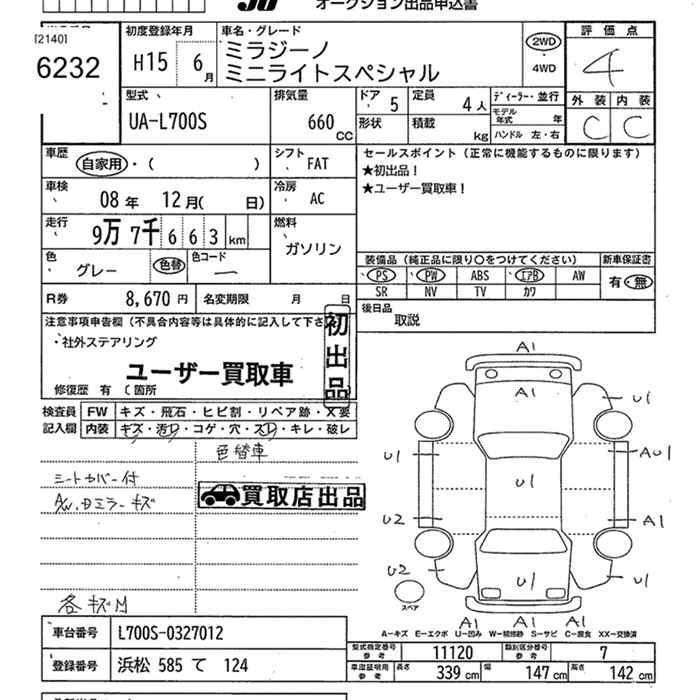 オークション出品申込書
[2140]
6232
初度登録年月
H15 6月
車名・グレード
ミラジーノ
ミニライトスペシャル
2WD
4WD
評価点
4
外装 内装
C C
型式
UA-L700S
排気量
660 CC
ドア 5
形状
定員 4人
積載 kg
ディーラー・並行
モデル年式 年
ハンドル 左・右
車歴
自家用・( )
シフト FAT
セールスポイント(正常に機能するものに限ります)
★初出品!
★ユーザー買取車!
車検
08年 12月( 日)
冷房 AC
走行
9万 7千 6 6 3 km
燃料
ガソリン
色 グレー 色替 色コード —
装備品(純正品に限り○をつけてください)
PS PW ABS エアB AW
SR NV TV カワ
新車保証書
有・無
R券 8,670円 名変期限 月 日
後日品
取説
注意事項申告欄(不具合内容等は具体的に記入して下さ
・社外ステアリング
ユーザー買取車
初出品
修復歴 有 (箇所
検査員記入欄
FW キズ・飛石・ヒビ割・リペア跡・X要
内装 キズ・汚レ・コゲ・穴・スレ・キレ・破レ
色替車
シートカバー付
A/W、Dミラーキズ
買取店出品
A1
A1
U1
U1
AU1
U1
U2
A1
U2
U1
U1
スペア
A1 A1
A-キズ E-エクボ U-凹み W-補修跡 S-サビ C-腐食 XX-交換済
車台番号 L700S-0327012
登録番号 浜松 585 て 124
型式指定番号 参考 11120 類別区分番号 参考 7
車庫証明用 参考 長さ 339 cm 幅 147 cm 高さ 142 cm